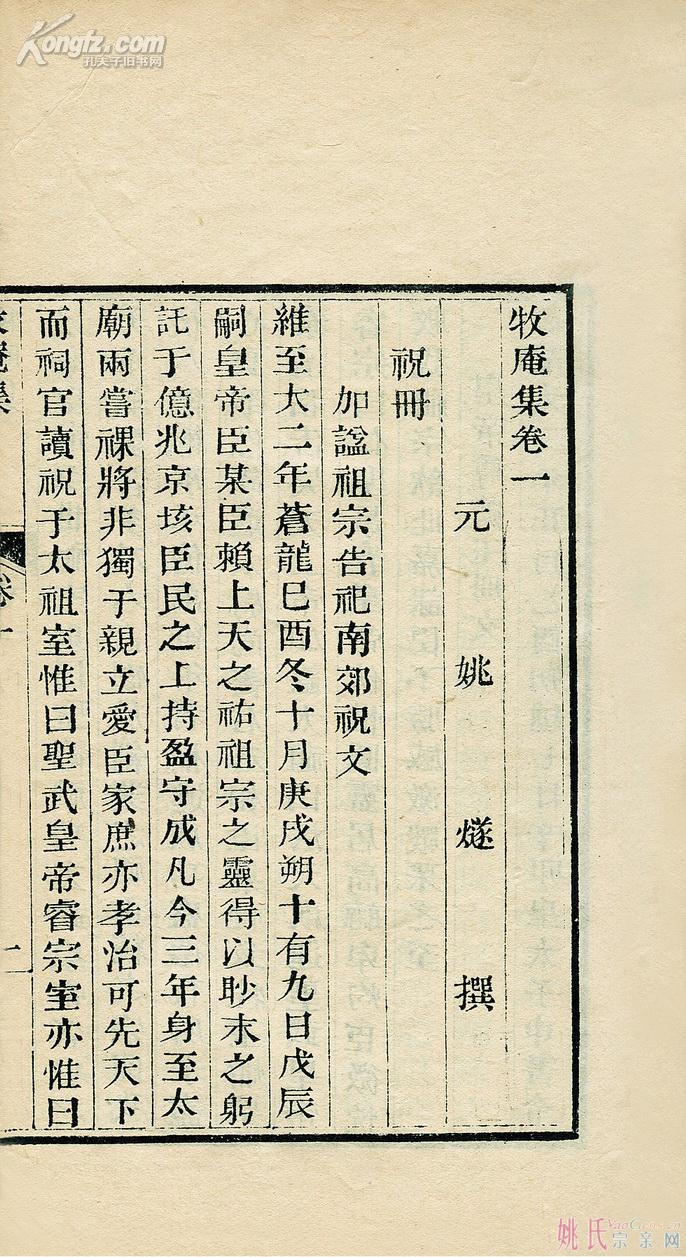 牧庵集卷一
元 姚 燧 撰
祝冊
加諡祖宗告祀南郊祝文
維至大二年蒼龍己酉冬十月庚戌朔十有九日戊辰
嗣皇帝臣某臣賴上天之祐祖宗之靈得以眇末之躬
託于億兆京垓臣民之上持盈守成凡今三年身至太
廟兩嘗祼將非獨于親立愛臣家庶亦孝治可先天下
而祠官讀祝于太祖室惟曰聖武皇帝睿宗室亦惟曰
卷一
二
Kongfz.com
孔夫子旧书网
姚氏宗亲网